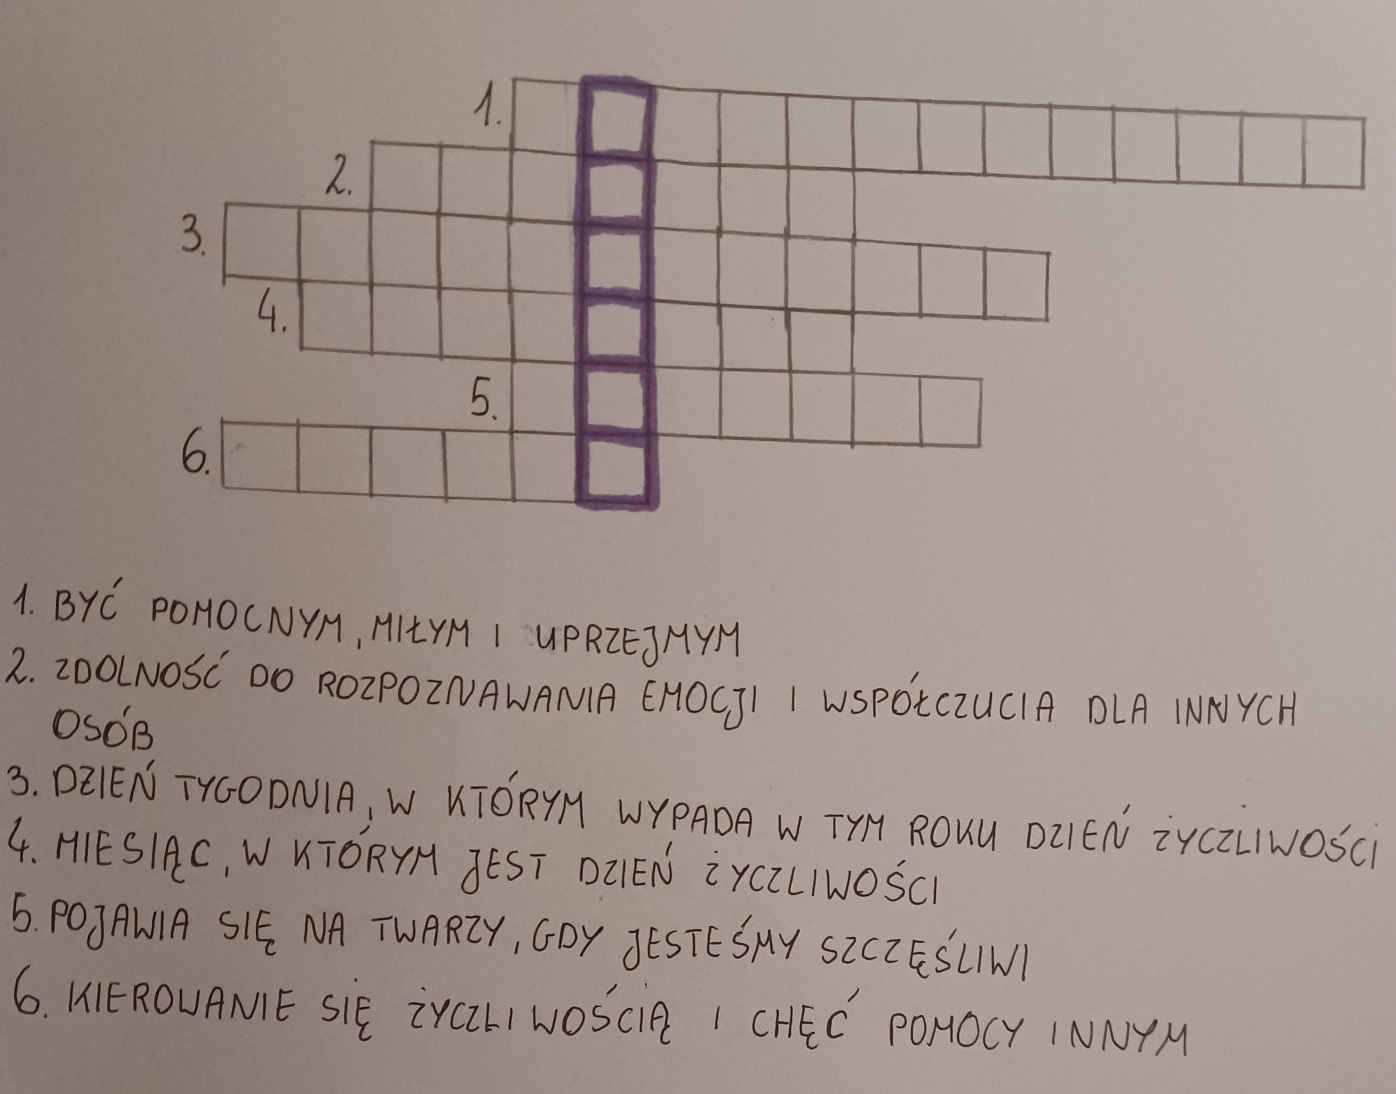 1.
2.
3.
4.
5.
6.
1. BYĆ POMOCNYM, MIŁYM I UPRZEJMYM
2. ZDOLNOŚĆ DO ROZPOZNAWANIA EMOCJI I WSPÓŁCZUCIA DLA INNYCH
OSÓB
3. DZIEŃ TYGODNIA, W KTÓRYM WYPADA W TYM ROKU DZIEŃ ŻYCZLIWOŚCI
4. MIESIĄC, W KTÓRYM JEST DZIEŃ ŻYCZLIWOŚCI
5. POJAWIA SIĘ NA TWARZY, GDY JESTEŚMY SZCZĘŚLIWI
6. KIEROWANIE SIĘ ŻYCZLIWOŚCIĄ I CHĘĆ POMOCY INNYM